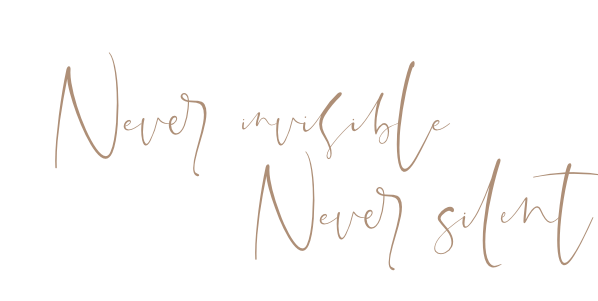 Never invisible
Never silent